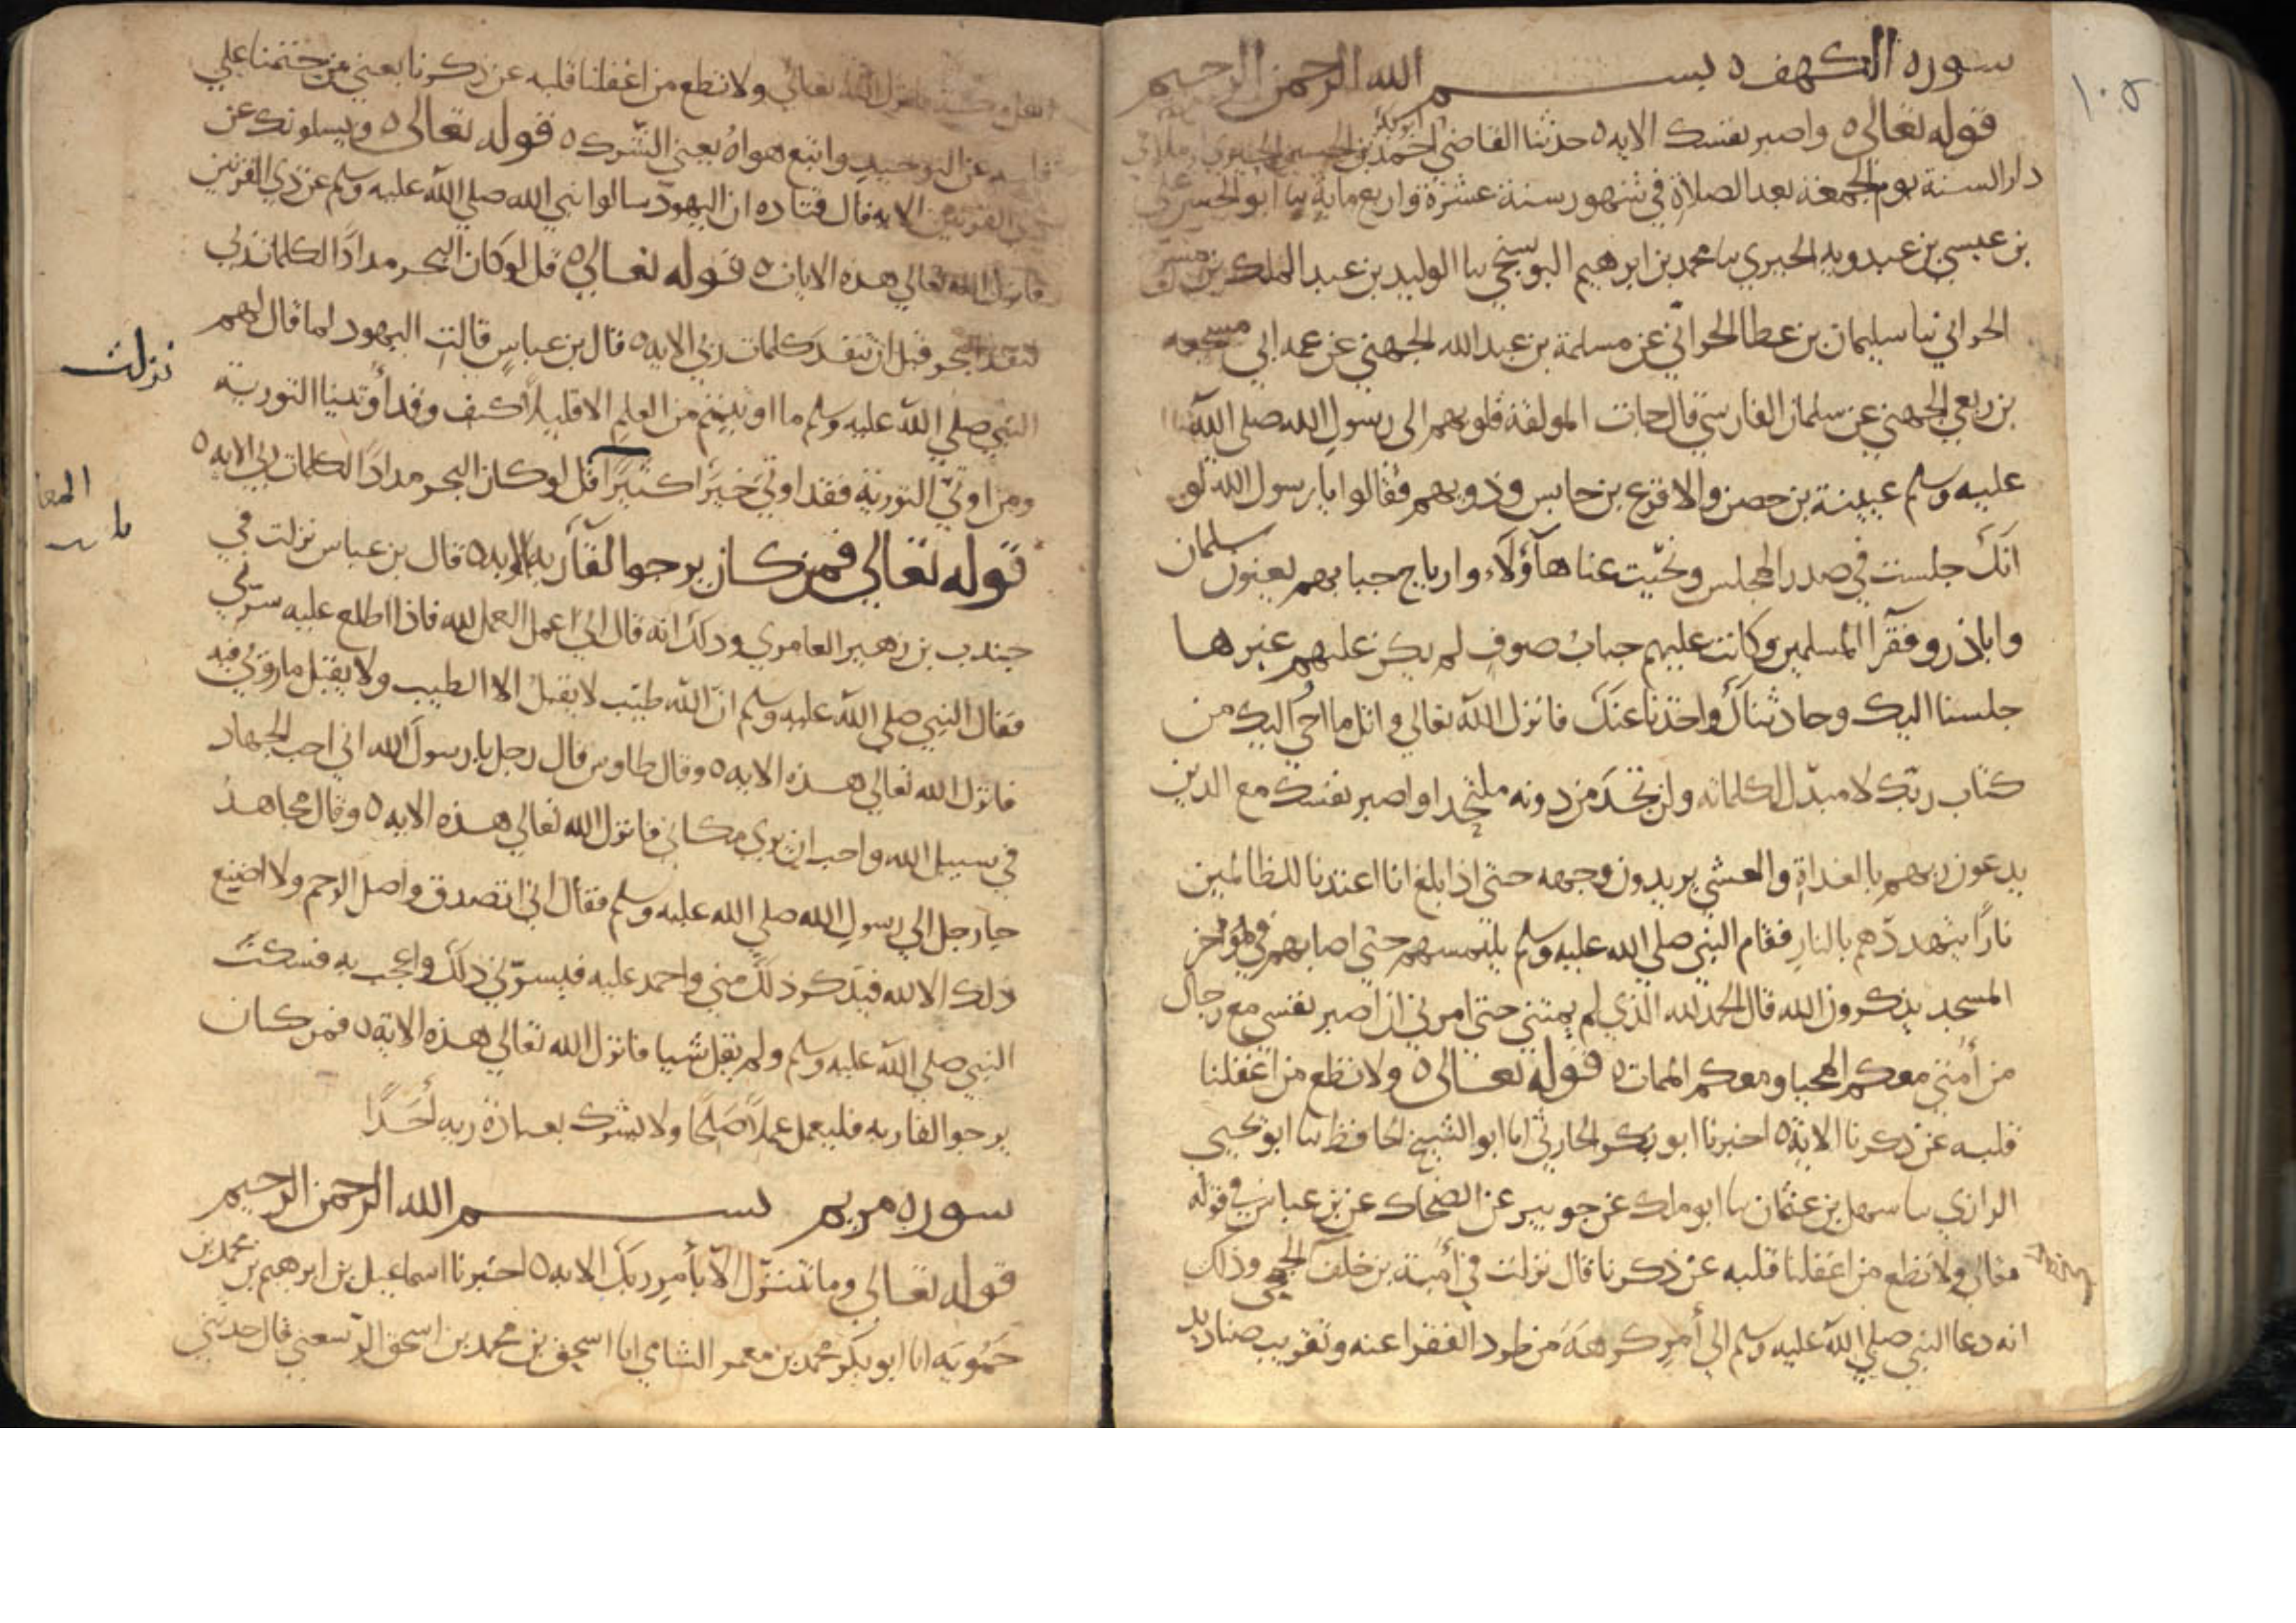 ١٠٥
سوره الكهف ٥ بسم الله الرحمن الرحيم
قوله تعالى ٥ واصبر نفسك الايه ٥ حدثنا القاضي ابو بكر احمد بن الحسين الحيري املا في
دار السنة يوم الجمعة بعد الصلاة في شهور سنة عشرة واربعماية نبا ابو الحسين علي
بن عيسي بن عبدويه الحيري نبا محمد بن ابرهيم البوسنجي نبا الوليد بن عبد الملك بن مسرح
الحراني نبا سليمان بن عطا الحراني عن مسلمة بن عبد الله الجهني عن عمه ابي مسجعه
بن ربعي الجهني عن سلمان الفارسي قال جات المولفة قلوبهم الى رسول الله صلى الله
عليه وسلم عيينة بن حصن والاقرع بن حابس وذويهم فقالوا يا رسول الله لو
انك جلست في صدر المجلس ونحيت عنا هاؤلاء وارباح جبابهم يعنون سلمان
وابا ذر وفقرا المسلمين وكانت عليهم جباب صوف لم يكن عليهم غيرها
جلسنا اليك وحادثناك واخذنا عنك فانزل الله تعالي واتل ما احي اليك من
كتاب ربك لا مبدل لكلماته ولن تجد من دونه ملتحدا واصبر نفسك مع الذين
يدعون ربهم بالغداة والعشي يريدون وجهه حتى اذا بلغ انا اعتدنا للظالمين
نارا يتهددهم بالنار فقام النبي صلى الله عليه وسلم يلتمسهم حتى اصابهم في مؤخر
المسجد يذكرون الله قال الحمد لله الذي لم يمتني حتى امرني ان اصبر نفسي مع رجال
من أمتي معكم المحيا ومعكم الممات ٥ قوله تعالى ٥ ولا تطع من اغفلنا
قلبه عن ذكرنا الاية ٥ اخبرنا ابو بكر الحارثي انا ابو الشيخ الحافظ نبا ابو يحيى
الرازي نبا سهل بن عثمان نبا ابو ملك عن جويبر عن الضحاك عن بن عباس في قوله
تعالى ولا تطع من اغفلنا قلبه عن ذكرنا قال نزلت في أمية بن خلف الجمحي وذلك
انه دعا النبي صلى الله عليه وسلم الي أمر كرهه من طرد الفقرا عنه وتقريب صناديد
اهل مكة فانزل الله تعالى ولا تطع من اغفلنا قلبه عن ذكرنا يعني من ختمنا علي
قلبه عن التوحيد واتبع هواه يعني الشرك ٥ قوله تعالى ٥ ويسلونك عن
ذي القرنين الايه قال قتاده ان اليهود سالوا نبي الله صلى الله عليه وسلم عن ذي القرنين
فانزل الله تعالي هذه الايات ٥ قوله تعالى ٥ قل لو كان البحر مدادا لكلمات ربي
لنفد البحر قبل ان تنفد كلمات ربي الايه ٥ قال بن عباس قالت اليهود لما قال لهم
نزلت
النبي صلى الله عليه وسلم ما اوتيتم من العلم الا قليلا كيف وقد أوتينا التورية
ومن اوتي التورية فقد اوتي خيرا كثيرا قل لو كان البحر مدادا لكلمات ربي الايه ٥
قوله تعالي فمن كان يرجوا لقآ ربه الايه ٥ قال بن عباس نزلت في
جندب بن زهير العامري وذلك انه قال اني اعمل العمل لله فاذا اطلع عليه سرني
فقال النبي صلى الله عليه وسلم ان الله طيب لا يقبل الا الطيب ولا يقبل ما روئي فيه
فانزل الله تعالي هذه الايه ٥ وقال طاوس قال رجل يا رسول الله اني احب الجهاد
في سبيل الله واحب ان يرى مكاني فانزل الله تعالي هذه الايه ٥ وقال مجاهد
جا رجل الي رسول الله صلى الله عليه وسلم فقال اني اتصدق واصل الرحم ولا اصنع
ذلك الا لله فيذكر ذلك مني واحمد عليه فيسرني ذلك واعجب به فسكت
النبي صلى الله عليه وسلم ولم يقل شيا فانزل الله تعالي هذه الاية ٥ فمن كان
يرجوا لقا ربه فليعمل عملا صلحا ولا يشرك بعبادة ربه أحدا
سوره مريم بسم الله الرحمن الرحيم
قوله تعالي وما نتنزل الا بأمر ربك الايه ٥ اخبرنا اسماعيل بن ابرهيم بن محمد بن
حمويه انا ابو بكر محمد بن معمر الشامي انا اسحق بن محمد بن اسحق الرسعني قال حدثني